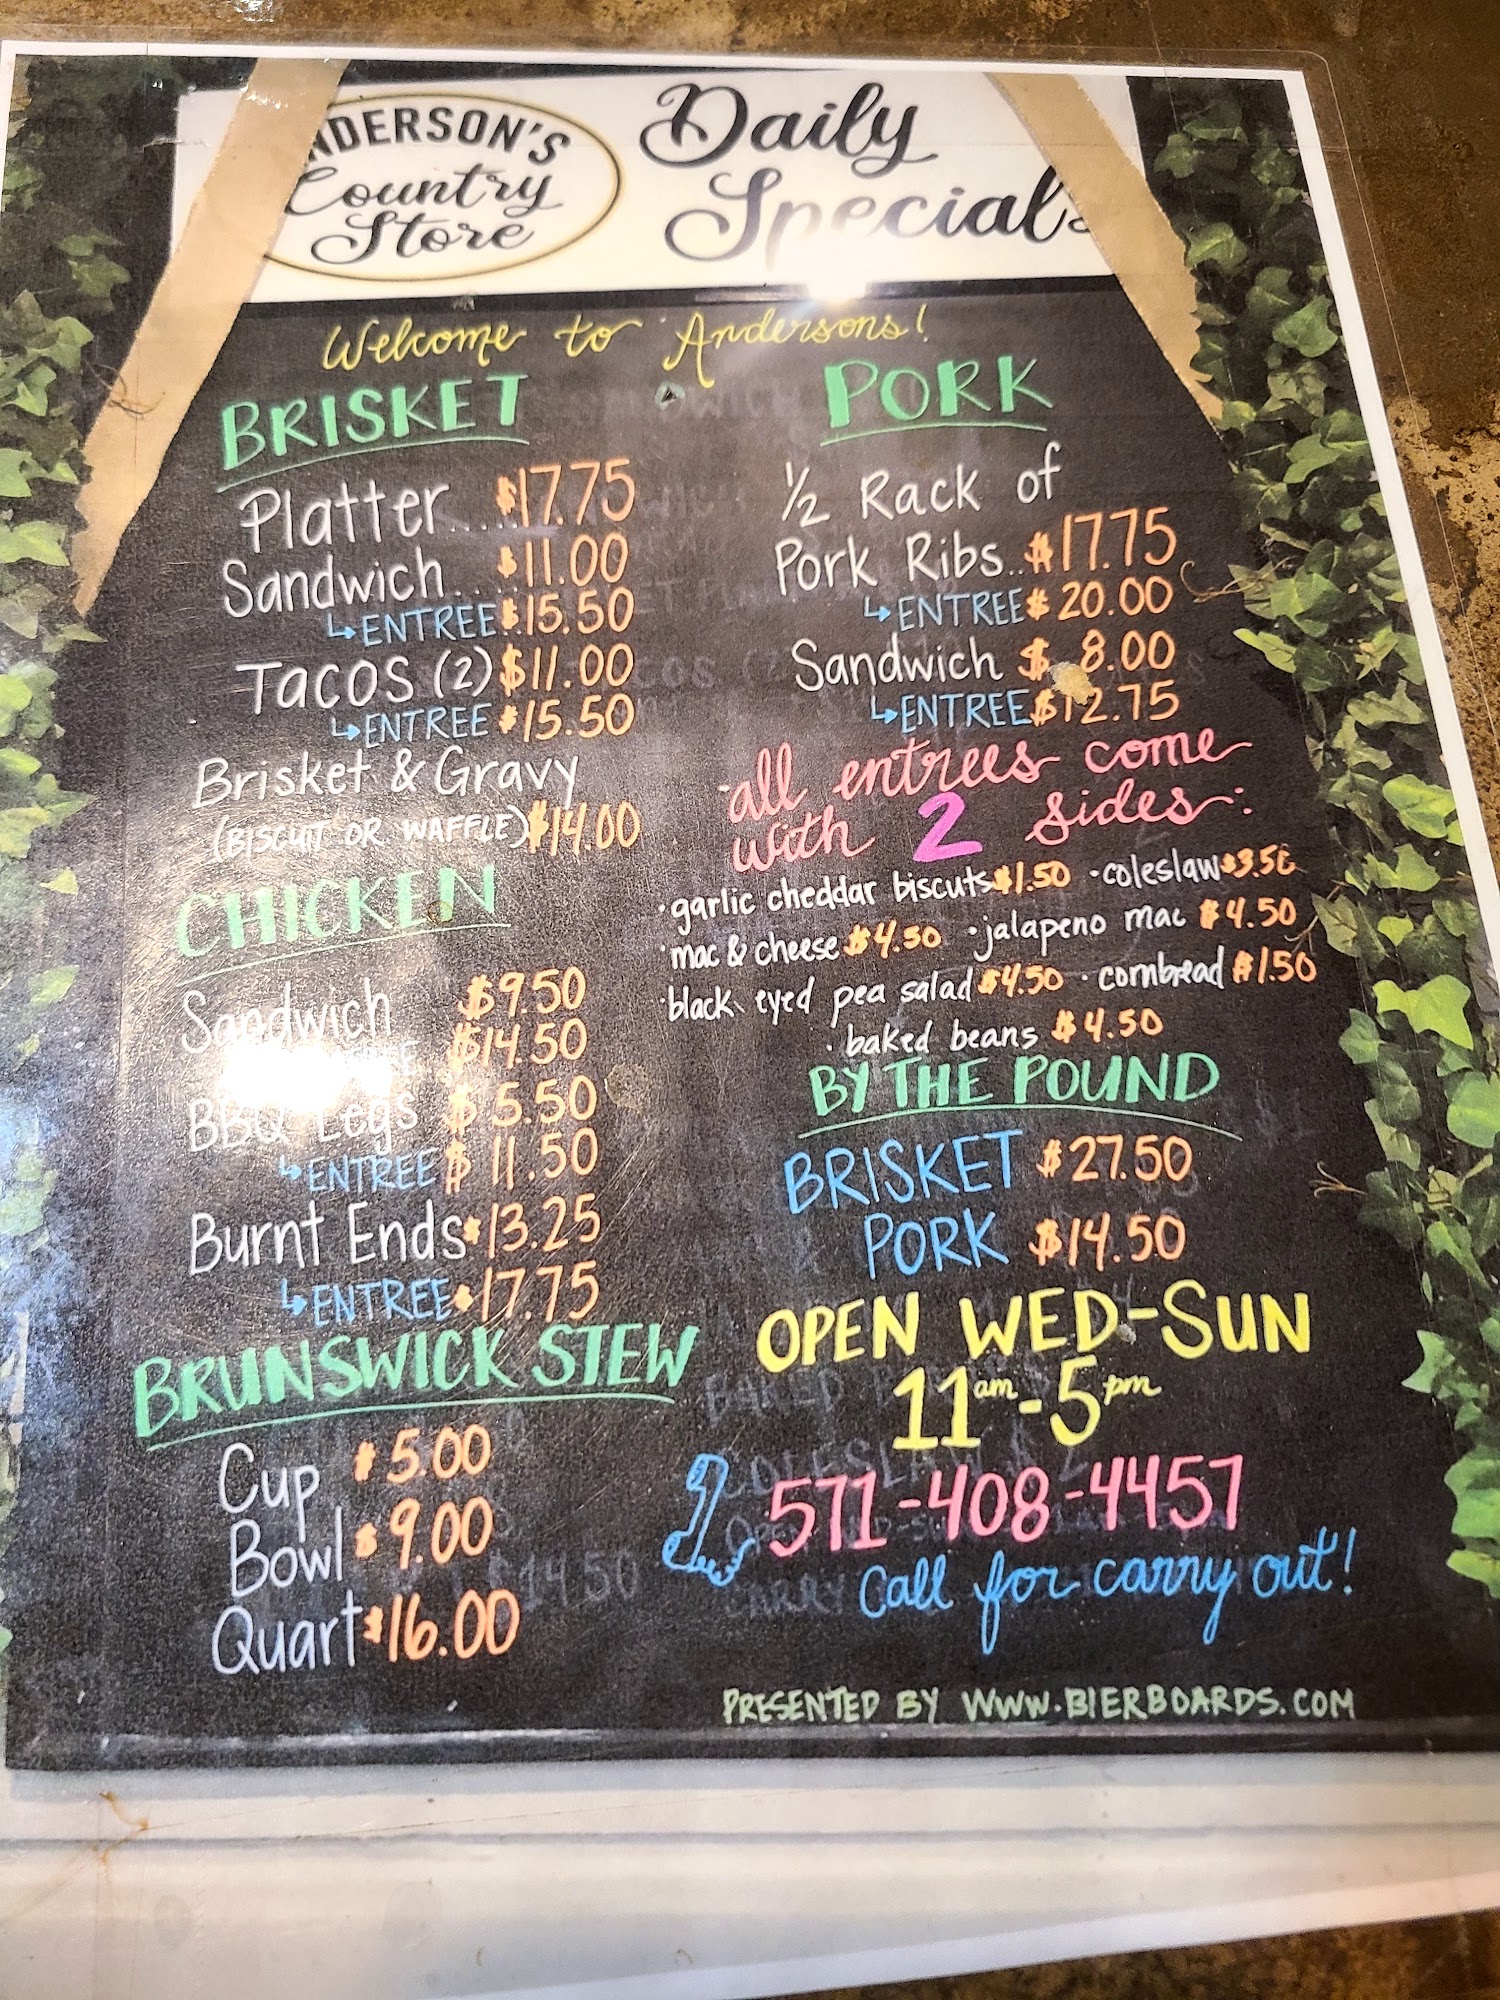 ANDERSON'S
Country
Store
Daily
Specials
Welcome to Andersons!
BRISKET
Platter....$17.75
Sandwich....$11.00
↳ENTREE $15.50
TACOS (2) $11.00
↳ENTREE $15.50
Brisket & Gravy
(BISCUIT OR WAFFLE) $14.00
CHICKEN
Sandwich $9.50
$14.50
BBQ Legs $5.50
↳ENTREE $11.50
Burnt Ends $13.25
↳ENTREE $17.75
BRUNSWICK STEW
Cup $5.00
Bowl $9.00
Quart $16.00
PORK
1/2 Rack of
Pork Ribs..$17.75
↳ENTREE $20.00
Sandwich $8.00
↳ENTREE $12.75
all entrees come
with 2 sides:
·garlic cheddar biscuts $1.50 ·coleslaw $3.50
·mac & cheese $4.50 ·jalapeno mac $4.50
·black eyed pea salad $4.50 ·cornbread $1.50
·baked beans $4.50
BY THE POUND
BRISKET $27.50
PORK $14.50
OPEN WED-SUN
11am-5pm
571-408-4457
Call for carry out!
PRESENTED BY WWW.BIERBOARDS.COM